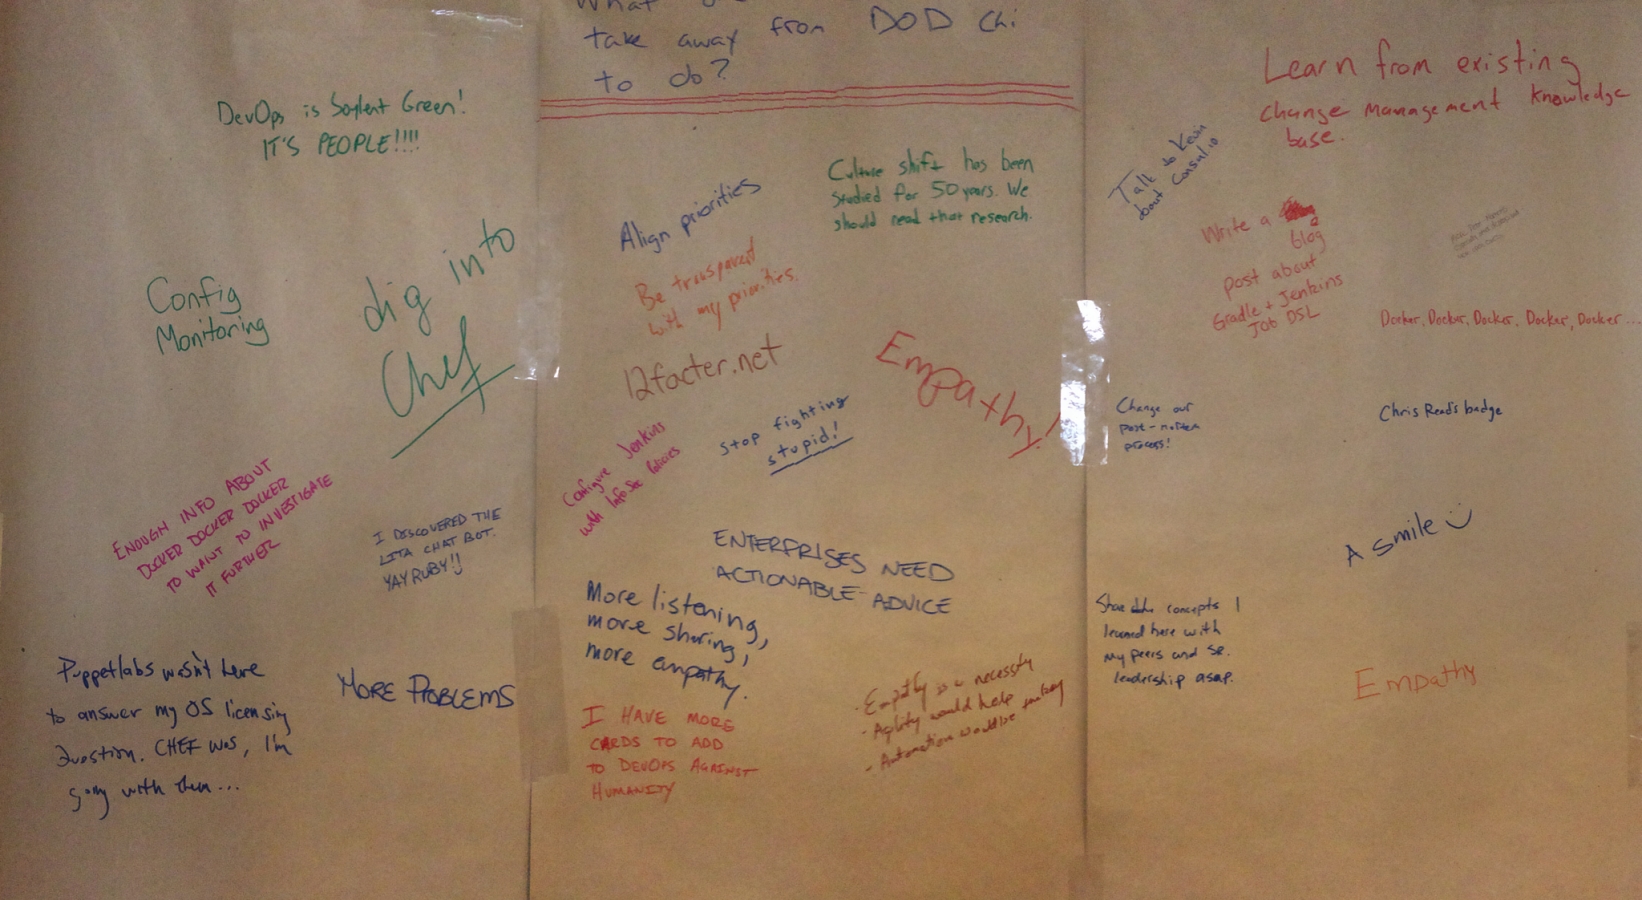 What
take away from DOD Chi
to do?
DevOps is Soylent Green!
IT'S PEOPLE!!!!
Config
Monitoring
dig into
Chef
ENOUGH INFO ABOUT
DOCKER DOCKER DOCKER
TO WANT TO INVESTIGATE
IT FURTHER
I DISCOVERED THE
LITA CHAT BOT.
YAY RUBY!!
Puppetlabs wasn't here
to answer my OS licensing
Question. CHEF was, I'm
going with them...
MORE PROBLEMS
Align priorities
Be transparent
with my priorities.
12facter.net
Culture shift has been
studied for 50 years. We
should read that research.
Empathy!
Configure Jenkins
with InfoSec Policies
Stop fighting
stupid!
ENTERPRISES NEED
ACTIONABLE ADVICE
More listening,
more sharing,
more empathy.
I HAVE MORE
CARDS TO ADD
TO DEVOPS AGAINST
HUMANITY
- Empathy is a necessity
- Agility would help
- Automation would be
Learn from existing
change management knowledge
base.
Talk to Kevin
about Consul.io
Write a
blog
post about
Gradle + Jenkins
Job DSL
Docker, Docker, Docker, Docker, Docker...
Change our
post-mortem
process!
Chris Read's badge
A smile
Share the concepts I
learned here with
my peers and sr.
leadership asap.
Empathy